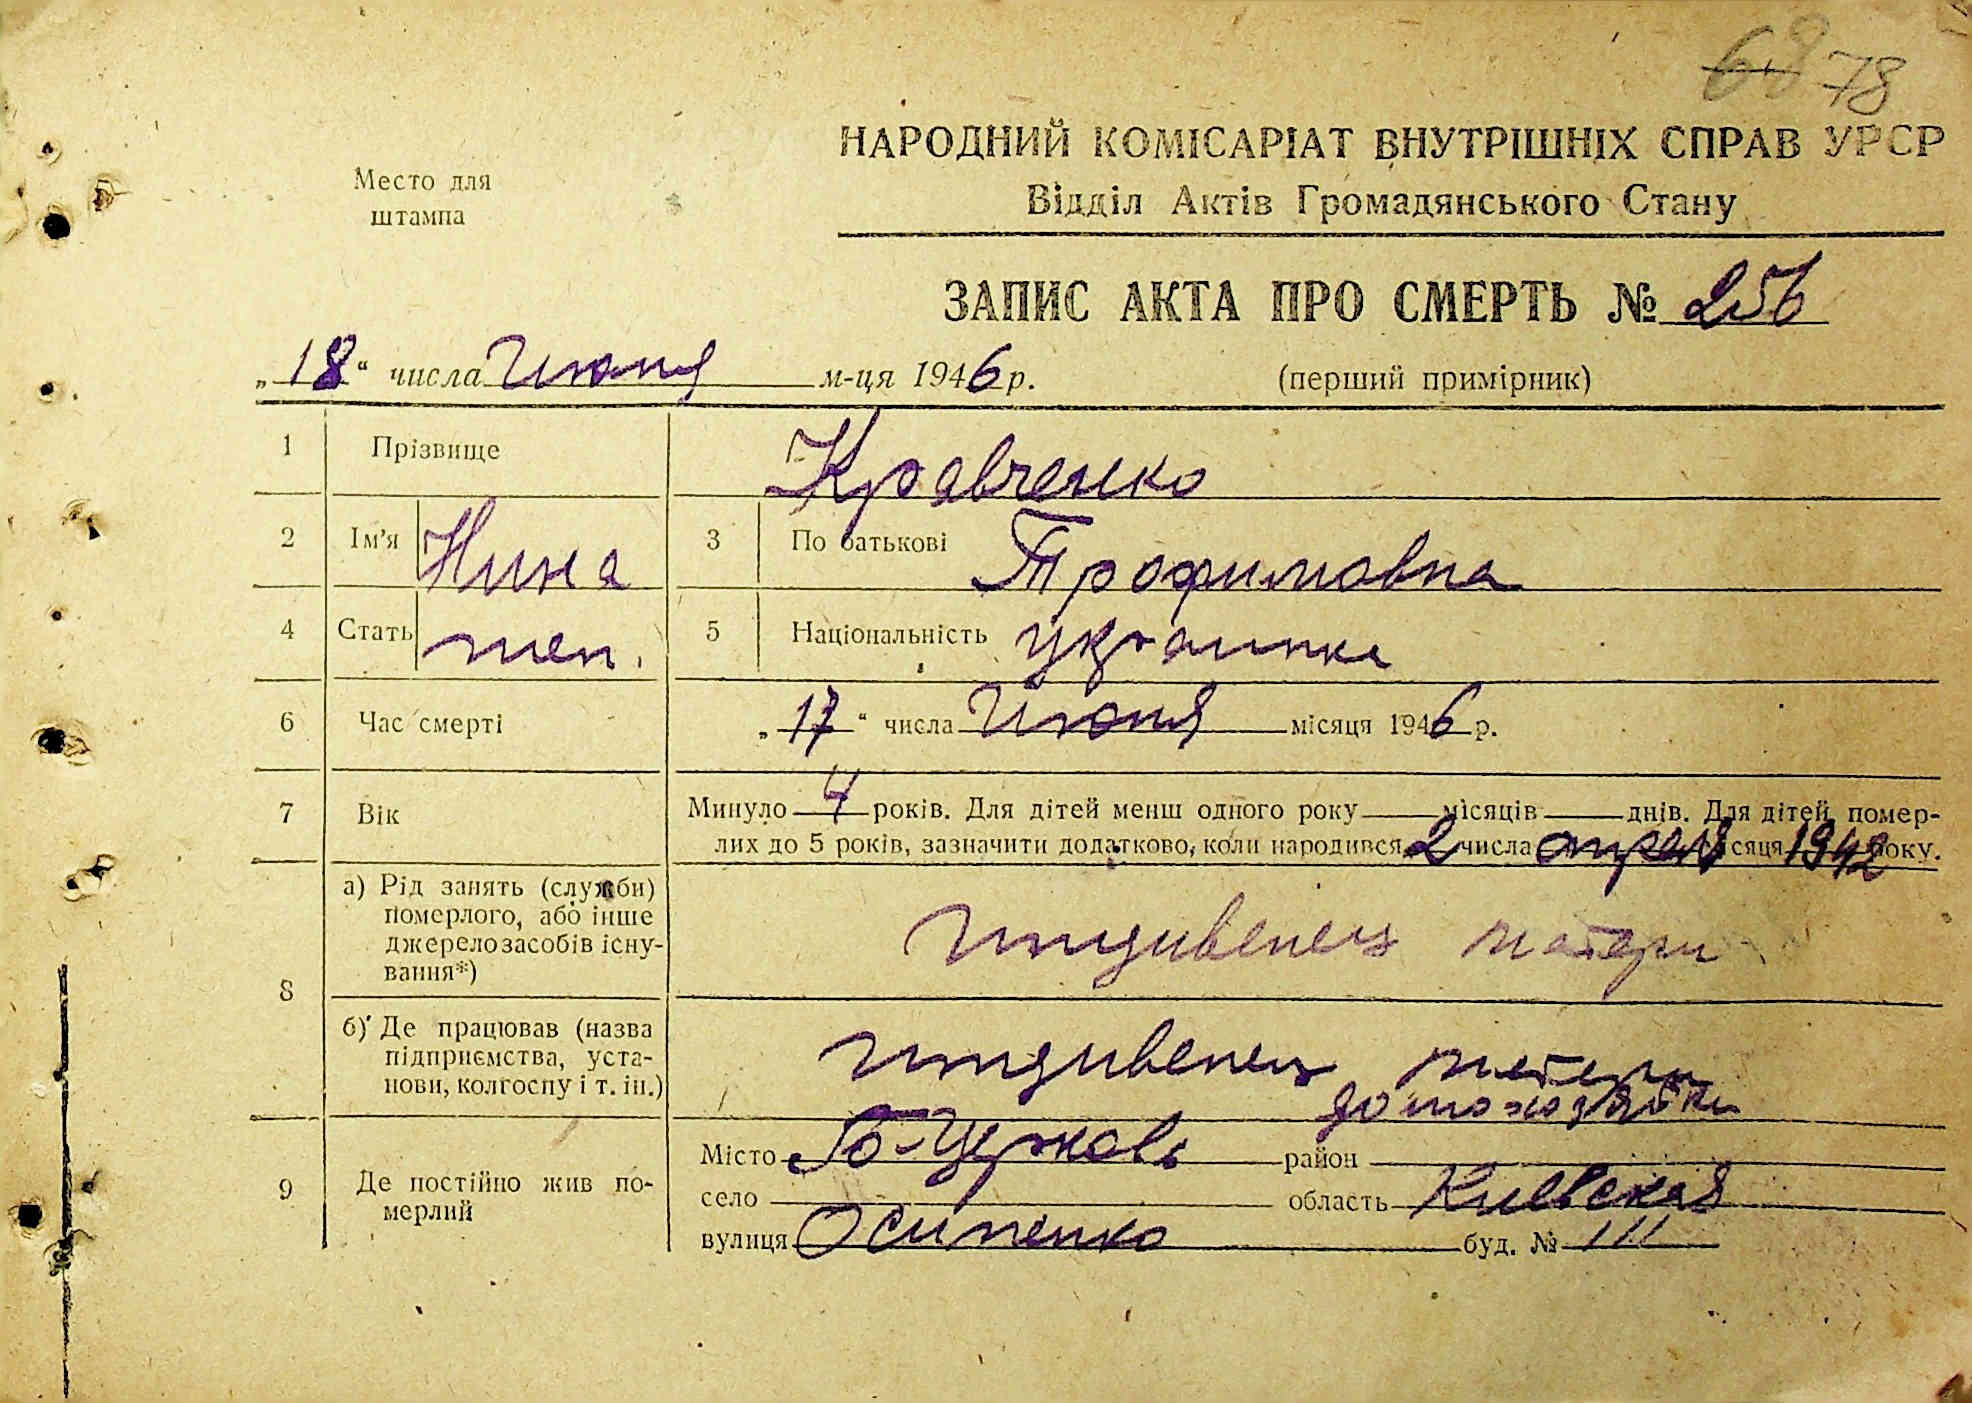 68 78
НАРОДНИЙ КОМІСАРІАТ ВНУТРІШНІХ СПРАВ УРСР
Место для
штампа
Відділ Актів Громадянського Стану
ЗАПИС АКТА ПРО СМЕРТЬ № 256
„18“ числа Июня м-ця 1946 р. (перший примірник)
1 Прізвище Кравченко
2 Ім'я Нина 3 По батькові Трофимовна
4 Стать жен. 5 Національність украинка
6 Час смерті „17“ числа Июня місяця 1946 р.
7 Вік Минуло 4 років. Для дітей менш одного року місяців днів. Для дітей, помер-
лих до 5 років, зазначити додатково, коли народився 2 числа апреля місяця 1942 року.
8 а) Рід занять (служби)
померлого, або інше
джерело засобів існу-
вання*)
Иждивенец матери
б) Де працював (назва
підприємства, уста-
нови, колгоспу і т. ін.)
иждивенец матери
домохозяйки
9 Де постійно жив по-
мерлий
Місто Б-Церковь район
село область Киевская
вулиця Осипенко буд. № 111